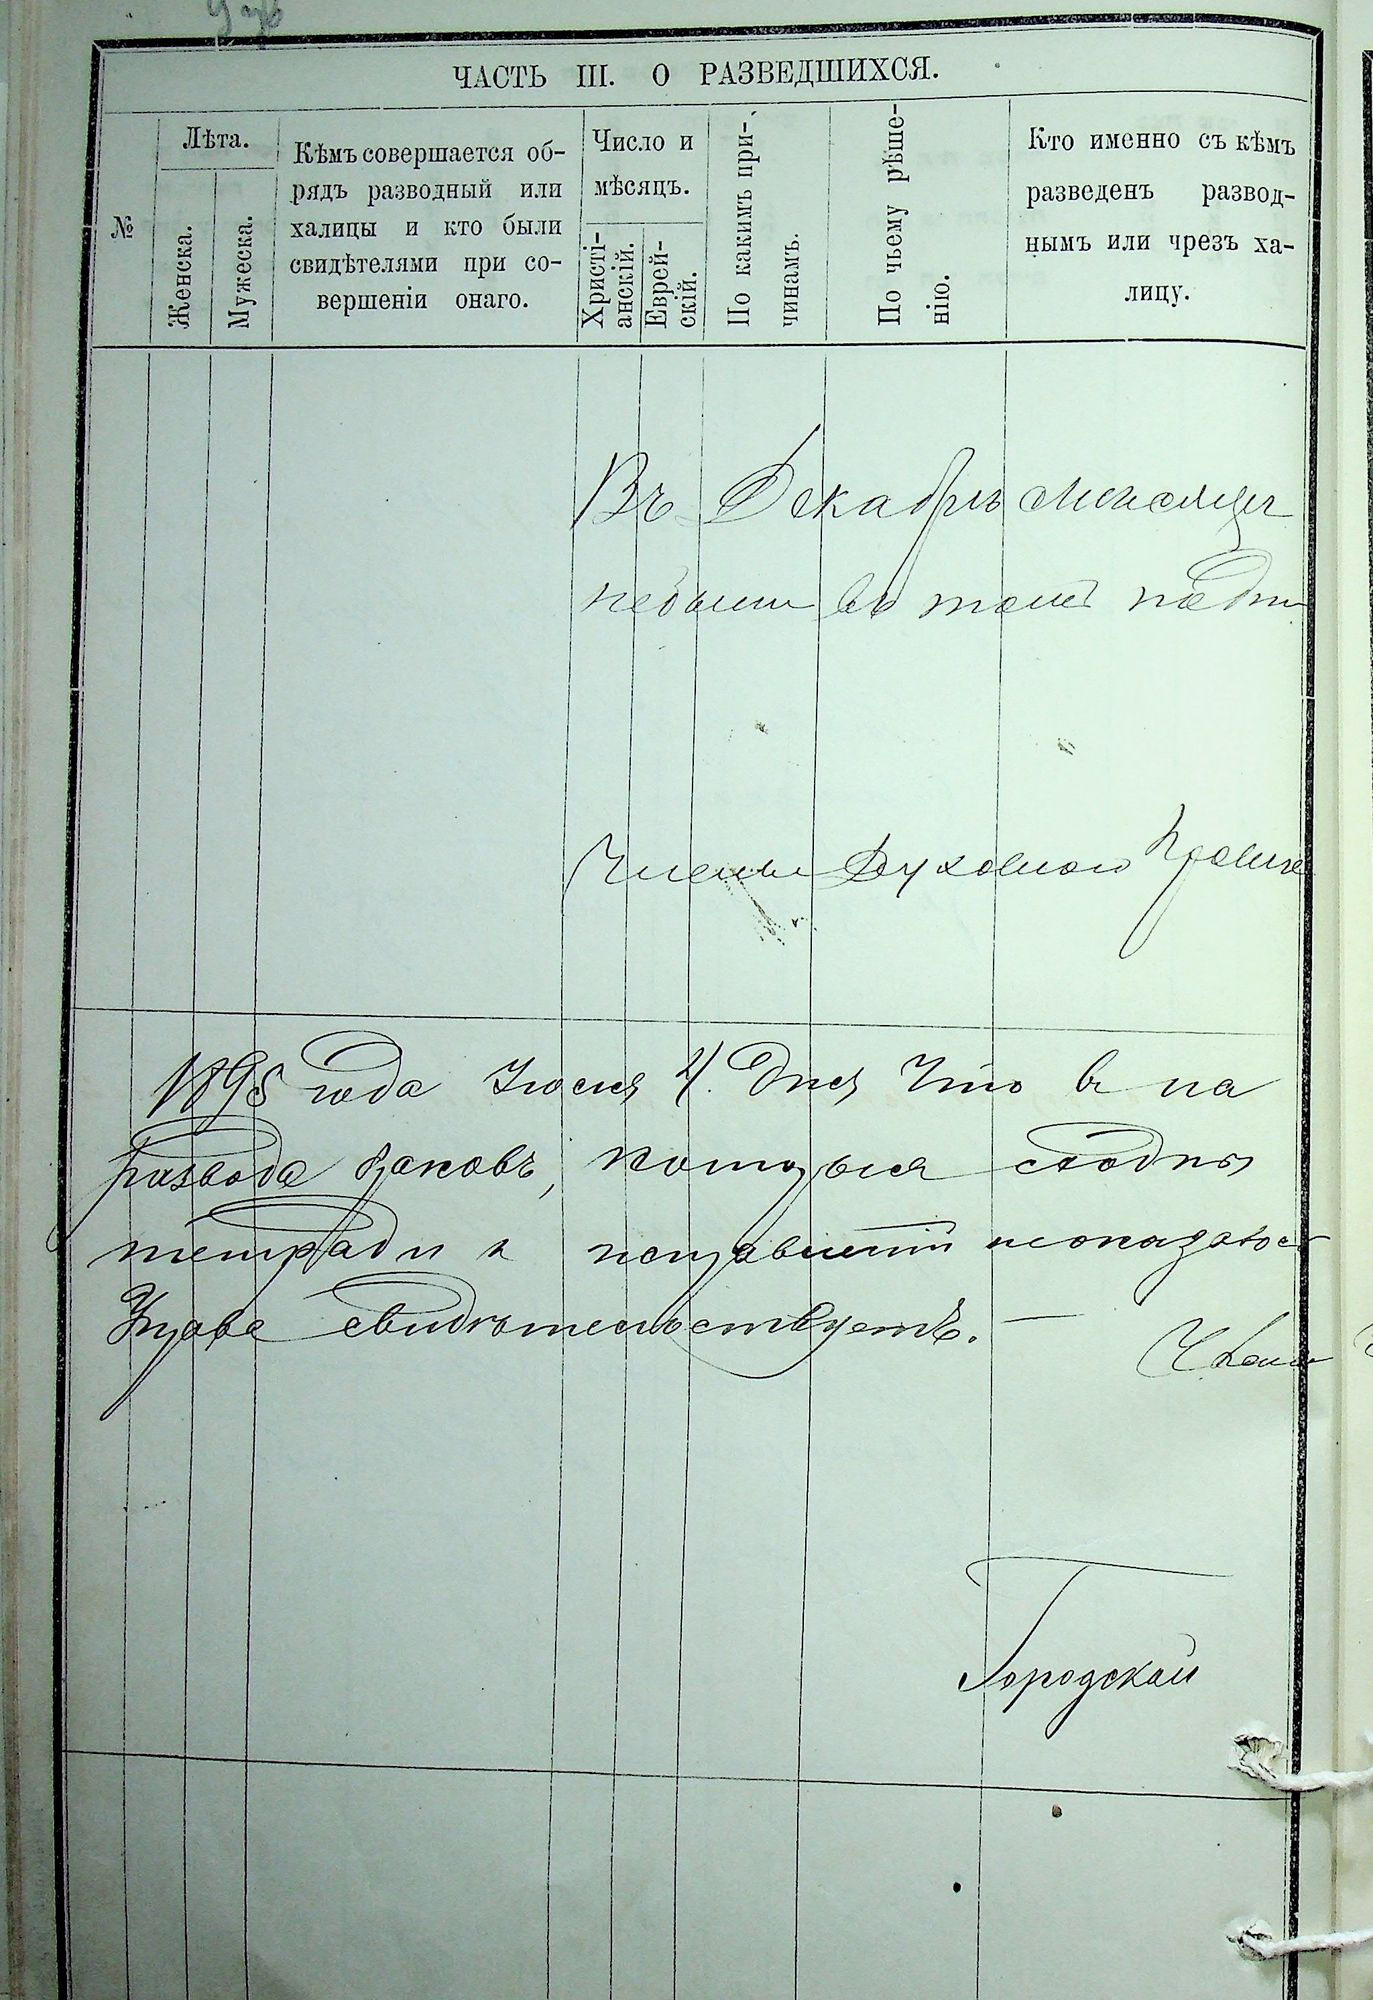 ЧАСТЬ III. О РАЗВЕДШИХСЯ.
№
Лѣта.
Женска.
Мужеска.
Кѣмъ совершается об-
рядъ разводный или
халицы и кто были
свидѣтелями при со-
вершеніи онаго.
Число и
мѣсяцъ.
Христі-
анскій.
Еврей-
скій.
По какимъ при-
чинамъ.
По чьему рѣше-
нію.
Кто именно съ кѣмъ
разведенъ развод-
нымъ или чрезъ ха-
лицу.
Въ Декабрѣ мѣсяцѣ
въ томъ
Члены Духовнои Правле
1895 года Іюня 4. Дня Что в на
развода браковъ, которыя сходны
тетради и
Управа свидѣтельствуетъ. —
Члени
Городскай